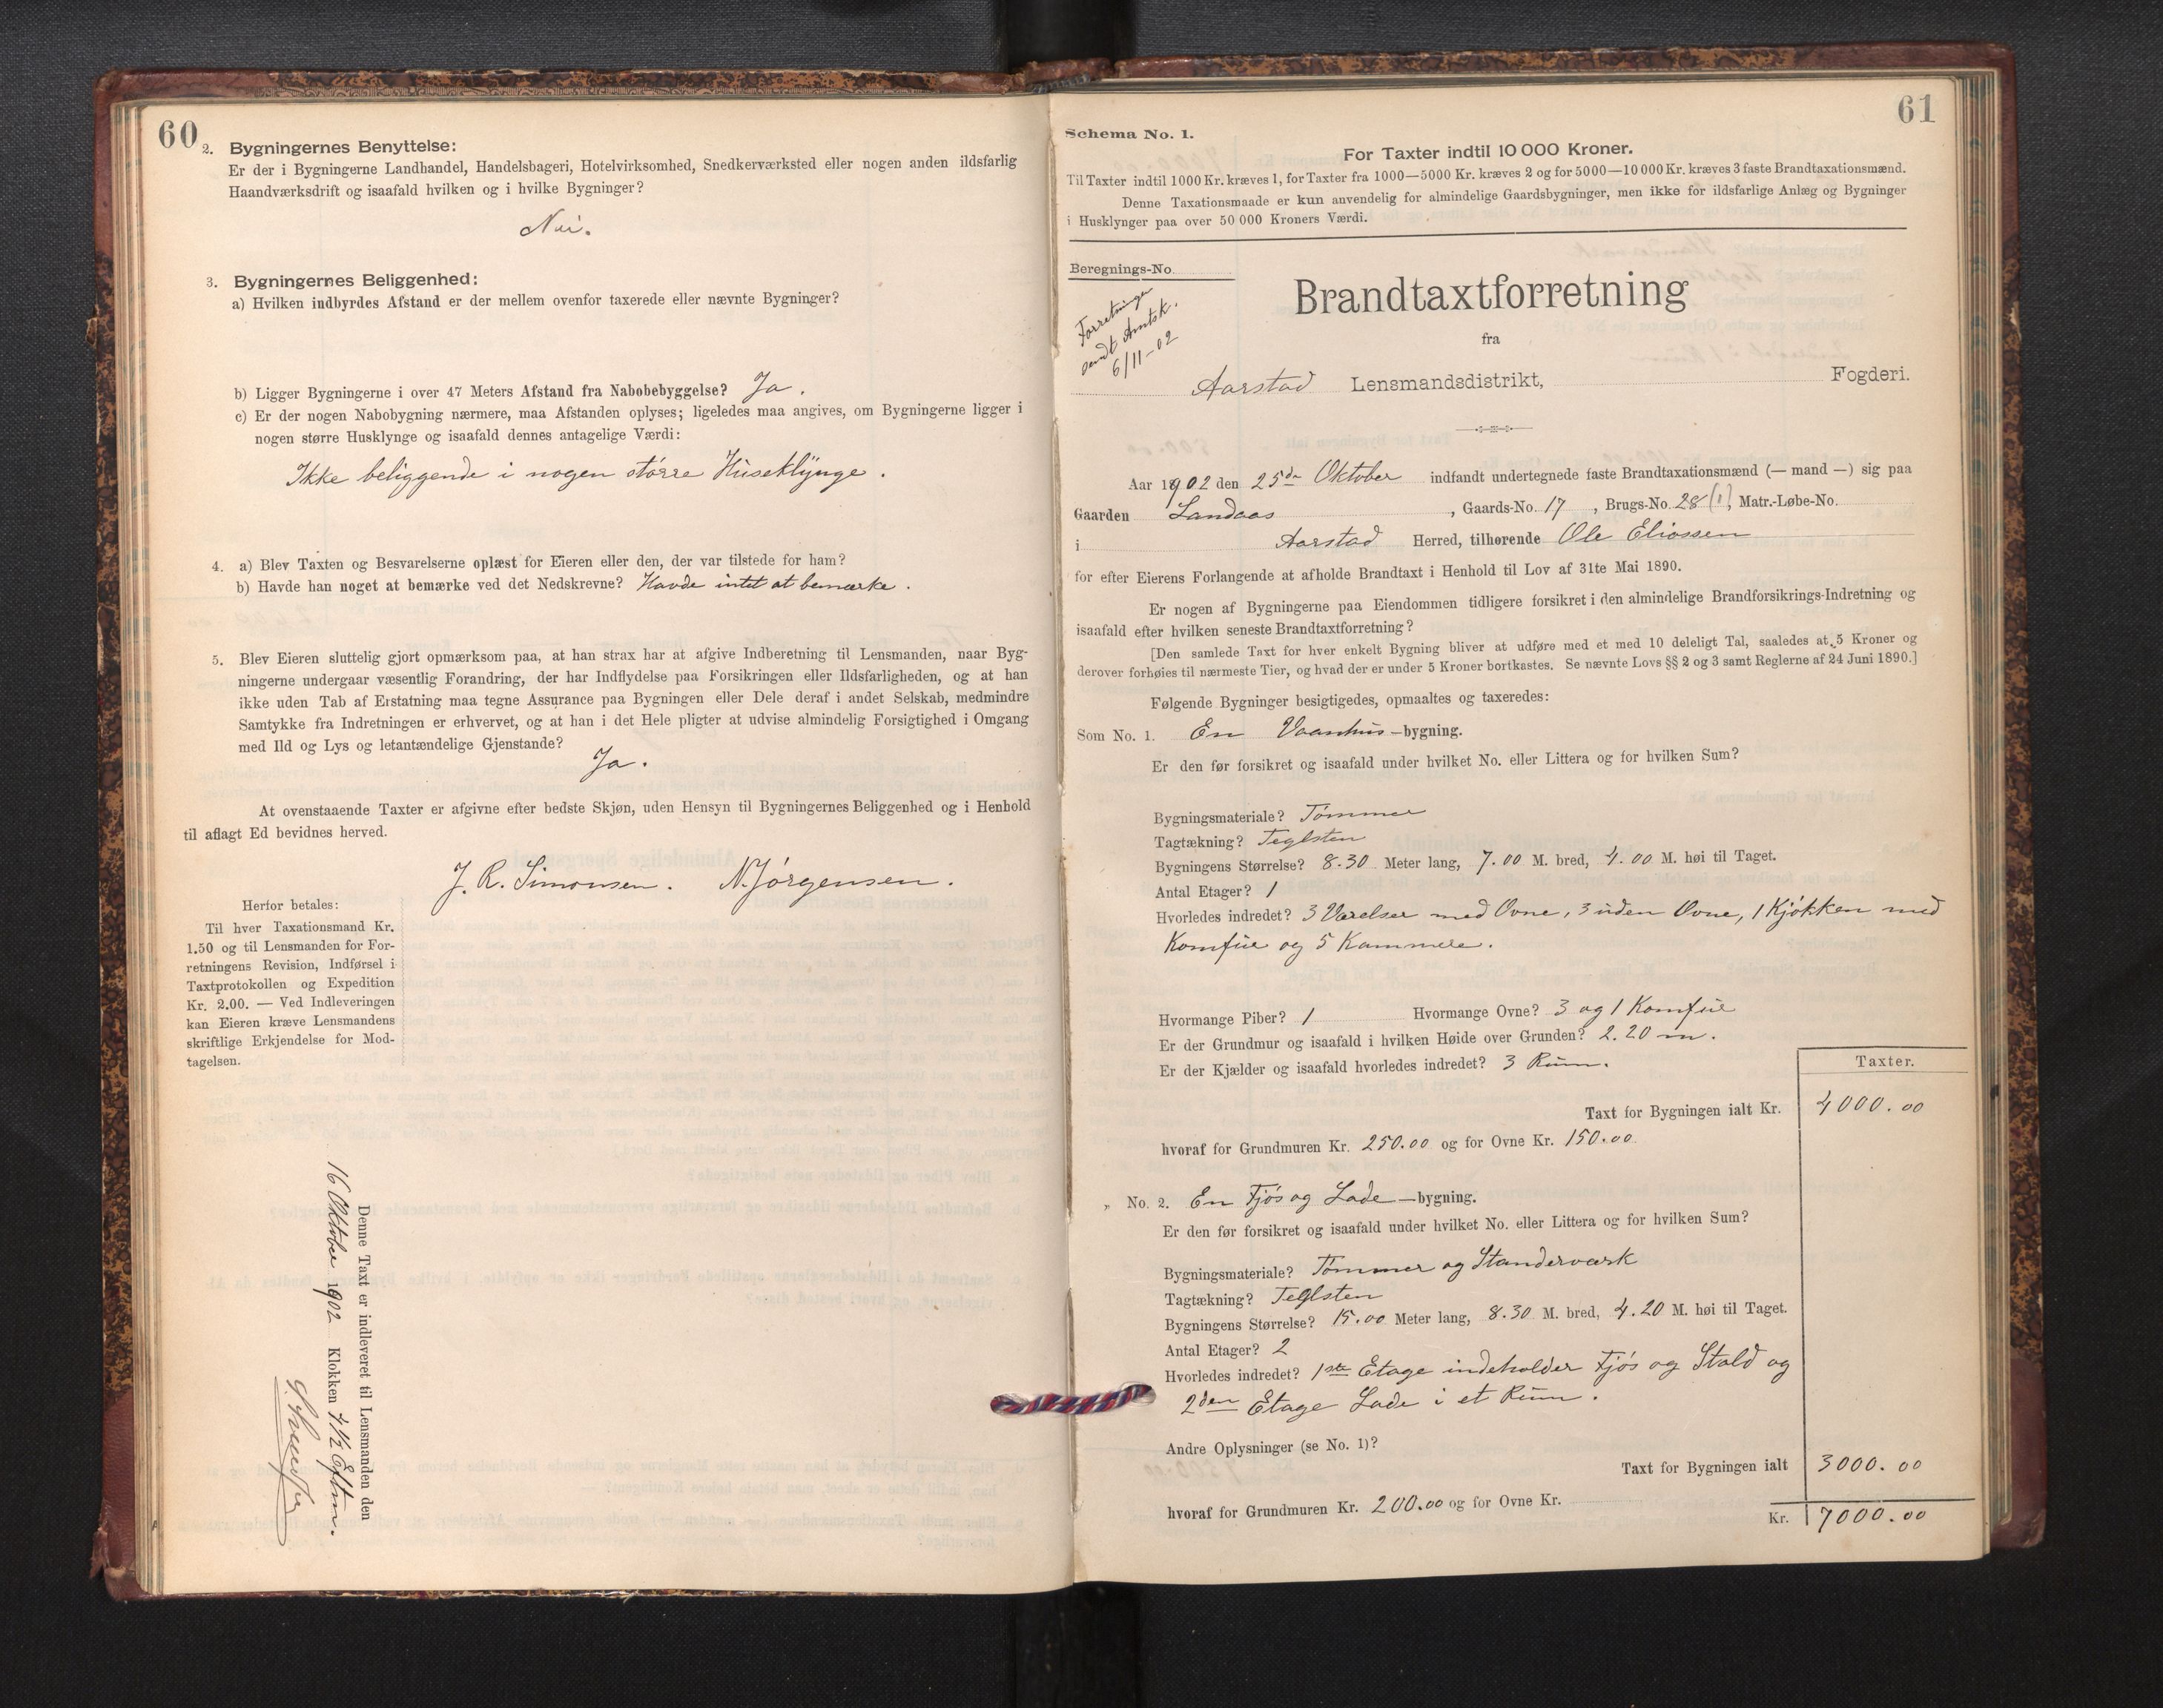 60
2. Bygningernes Benyttelse:
Er der i Bygningerne Landhandel, Handelsbageri, Hotelvirksomhed, Snedkerværksted eller nogen anden ildsfarlig
Haandværksdrift og isaafald hvilken og i hvilke Bygninger?
Nei.
3. Bygningernes Beliggenhed:
a) Hvilken indbyrdes Afstand er der mellem ovenfor taxerede eller nævnte Bygninger?
b) Ligger Bygningerne i over 47 Meters Afstand fra Nabobebyggelse? Ja.
c) Er der nogen Nabobygning nærmere, maa Afstanden oplyses; ligeledes maa angives, om Bygningerne ligger i
nogen større Husklynge og isaafald dennes antagelige Værdi:
Ikke beliggende i nogen større Huseklynge.
4. a) Blev Taxten og Besvarelserne oplæst for Eieren eller den, der var tilstede for ham?
b) Havde han noget at bemærke ved det Nedskrevne? Havde intet at bemærke.
5. Blev Eieren sluttelig gjort opmærksom paa, at han strax har at afgive Indberetning til Lensmanden, naar Byg-
ningerne undergaar væsentlig Forandring, der har Indflydelse paa Forsikringen eller Ildsfarligheden, og at han
ikke uden Tab af Erstatning maa tegne Assurance paa Bygningen eller Dele deraf i andet Selskab, medmindre
Samtykke fra Indretningen er erhvervet, og at han i det Hele pligter at udvise almindelig Forsigtighed i Omgang
med Ild og Lys og letantændelige Gjenstande?
Ja.
At ovenstaaende Taxter er afgivne efter bedste Skjøn, uden Hensyn til Bygningernes Beliggenhed og i Henhold
til aflagt Ed bevidnes herved.
J. R. Simonsen. N. Jørgensen.
Herfor betales:
Til hver Taxationsmand Kr.
1.50 og til Lensmanden for For-
retningens Revision, Indførsel i
Taxtprotokollen og Expedition
Kr. 2.00. — Ved Indleveringen
kan Eieren kræve Lensmandens
skriftlige Erkjendelse for Mod-
tagelsen.
Denne Taxt er indleveret til Lensmanden den
16 Oktober 1902 Klokken 4 1/2 Eftm.
61
Schema No. 1.
For Taxter indtil 10 000 Kroner.
Til Taxter indtil 1000 Kr. kræves 1, for Taxter fra 1000—5000 Kr. kræves 2 og for 5000—10 000 Kr. kræves 3 faste Brandtaxationsmænd.
Denne Taxationsmaade er kun anvendelig for almindelige Gaardsbygninger, men ikke for ildsfarlige Anlæg og Bygninger
i Husklynger paa over 50 000 Kroners Værdi.
Beregnings-No.
Forretningen
sendt Amtsk.
6/11-02
Brandtaxtforretning
fra
Aarstad Lensmandsdistrikt, Fogderi.
Aar 1902 den 25de Oktober indfandt undertegnede faste Brandtaxationsmænd (— mand —) sig paa
Gaarden Landaas, Gaards-No. 17, Brugs-No. 28 (1), Matr.-Løbe-No.
i Aarstad Herred, tilhørende Ole Eliassen
for efter Eierens Forlangende at afholde Brandtaxt i Henhold til Lov af 31te Mai 1890.
Er nogen af Bygningerne paa Eiendommen tidligere forsikret i den almindelige Brandforsikrings-Indretning og
isaafald efter hvilken seneste Brandtaxtforretning?
[Den samlede Taxt for hver enkelt Bygning bliver at udføre med et med 10 deleligt Tal, saaledes at 5 Kroner og
derover forhøies til nærmeste Tier, og hvad der er under 5 Kroner bortkastes. Se nævnte Lovs §§ 2 og 3 samt Reglerne af 24 Juni 1890.]
Følgende Bygninger besigtigedes, opmaaltes og taxeredes:
Som No. 1. En Vaanhus-bygning.
Er den før forsikret og isaafald under hvilket No. eller Littera og for hvilken Sum?
Bygningsmateriale? Tømmer
Tagtækning? Teglsten
Bygningens Størrelse? 8.30 Meter lang, 7.00 M. bred, 4.00 M. høi til Taget.
Antal Etager? 1
Hvorledes indredet? 3 Værelser med Ovne, 3 uden Ovne, 1 Kjøkken med
Komfur og 5 Kammere.
Hvormange Piber? 1 Hvormange Ovne? 3 og 1 Komfur
Er der Grundmur og isaafald i hvilken Høide over Grunden? 2.20 m.
Er der Kjælder og isaafald hvorledes indredet? 3 Rum.
Taxter.
Taxt for Bygningen ialt Kr. 4000.00
hvoraf for Grundmuren Kr. 250.00 og for Ovne Kr. 150.00
„ No. 2. En Fjøs og Lade-bygning.
Er den før forsikret og isaafald under hvilket No. eller Littera og for hvilken Sum?
Bygningsmateriale? Tømmer og Standerværk
Tagtækning? Teglsten
Bygningens Størrelse? 15.00 Meter lang, 8.30 M. bred, 4.20 M. høi til Taget.
Antal Etager? 2
Hvorledes indredet? 1ste Etage indeholder Fjøs og Stald og
2den Etage Lade i et Rum.
Andre Oplysninger (se No. 1)?
Taxt for Bygningen ialt 3000.00
hvoraf for Grundmuren Kr. 200.00 og for Ovne Kr.
Kr. 7000.00